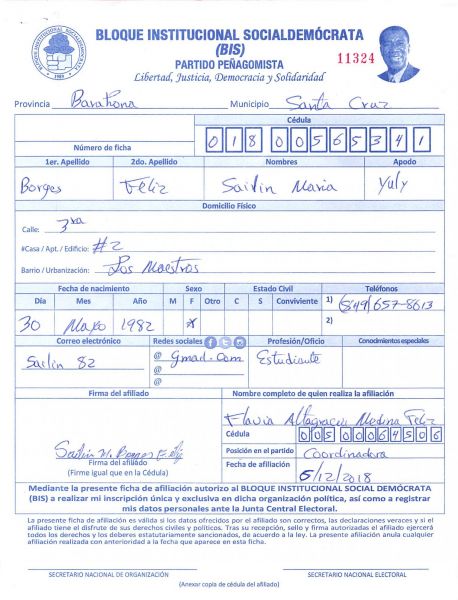 BLOQUE INSTITUCIONAL SOCIALDEMÓCRATA
(BIS)
PARTIDO PEÑAGOMISTA
Libertad, Justicia, Democracia y Solidaridad
11324
Provincia Barahona Municipio Santa Cruz
Cédula
Número de ficha 018 0056534 1
1er. Apellido 2do. Apellido Nombres Apodo
Borges Feliz Sailin Maria Yuly
Domicilio Físico
Calle: 3ra
#Casa / Apt. / Edificio: #2
Barrio / Urbanización: Los Maestros
Fecha de nacimiento Sexo Estado Civil Teléfonos
Día Mes Año M F Otro C S Conviviente 1) (849) 657-8613
30 Mayo 1982 x 2)
Correo electrónico Redes sociales Profesión/Oficio Conocimientos especiales
Sailin 82 @ gmail.com Estudiante
@
@
Firma del afiliado Nombre completo de quien realiza la afiliación
Flavia Altagracia Medina Feliz
Cédula
005 0006450 6
Firma del afiliado Posición en el partido Coordinadora
(Firme igual que en la Cédula) Fecha de afiliación 5/12/2018
Mediante la presente ficha de afiliación autorizo al BLOQUE INSTITUCIONAL SOCIAL DEMÓCRATA
(BIS) a realizar mi inscripción única y exclusiva en dicha organización política, así como a registrar
mis datos personales ante la Junta Central Electoral.
La presente ficha de afiliación es válida si los datos ofrecidos por el afiliado son correctos, las declaraciones veraces y si el
afiliado tiene el disfrute de sus derechos civiles y políticos. Tras su recepción, sello y firma autorizadas el afiliado ejercerá
todos los derechos y los deberes estatutariamente sancionados, de acuerdo a la ley. La presente afiliación anula cualquier
afiliación realizada con anterioridad a la fecha que aparece en esta ficha.
SECRETARIO NACIONAL DE ORGANIZACIÓN SECRETARIO NACIONAL ELECTORAL
(Anexar copia de cédula del afiliado)